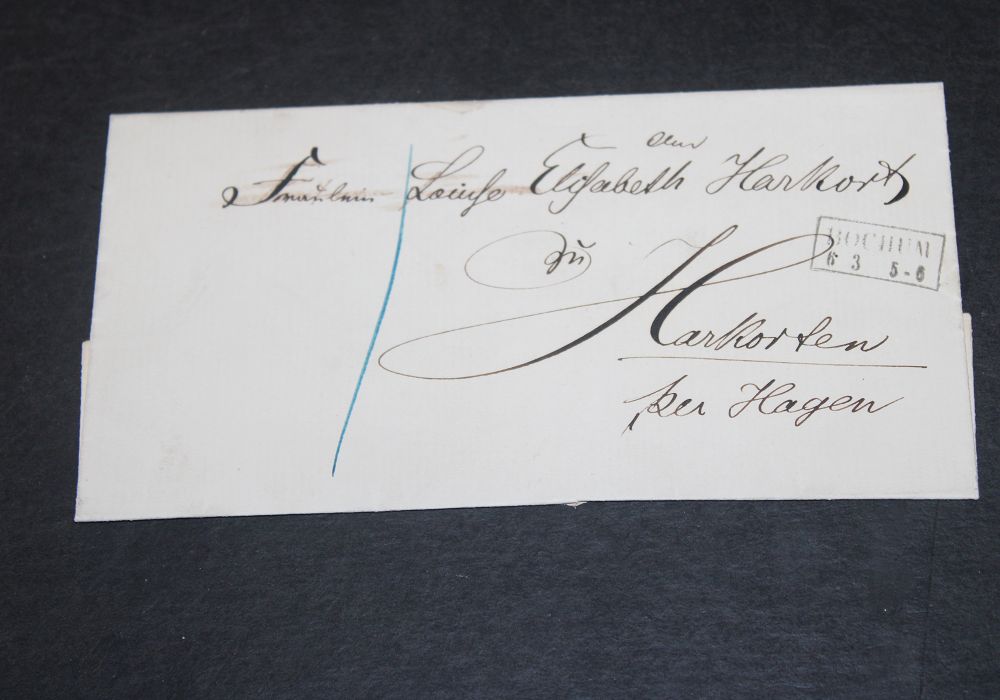 Fräulein Louise Elisabeth Harkort
zu
BOCHUM
6 3 5-6
Harkorten
per Hagen